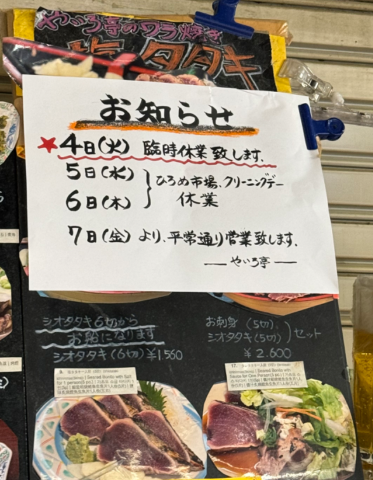 やいろ亭のワラ焼き
塩タタキ
お知らせ
★4日(火) 臨時休業致します。
5日(水)
6日(木)
ひろめ市場、クリーニングデー
休業
7日(金)より、平常通り営業致します。
―やいろ亭―
シオタタキ6切から
お船になります
シオタタキ(6切)¥1,560
お刺身(5切)
シオタタキ(5切)
セット
¥2,600